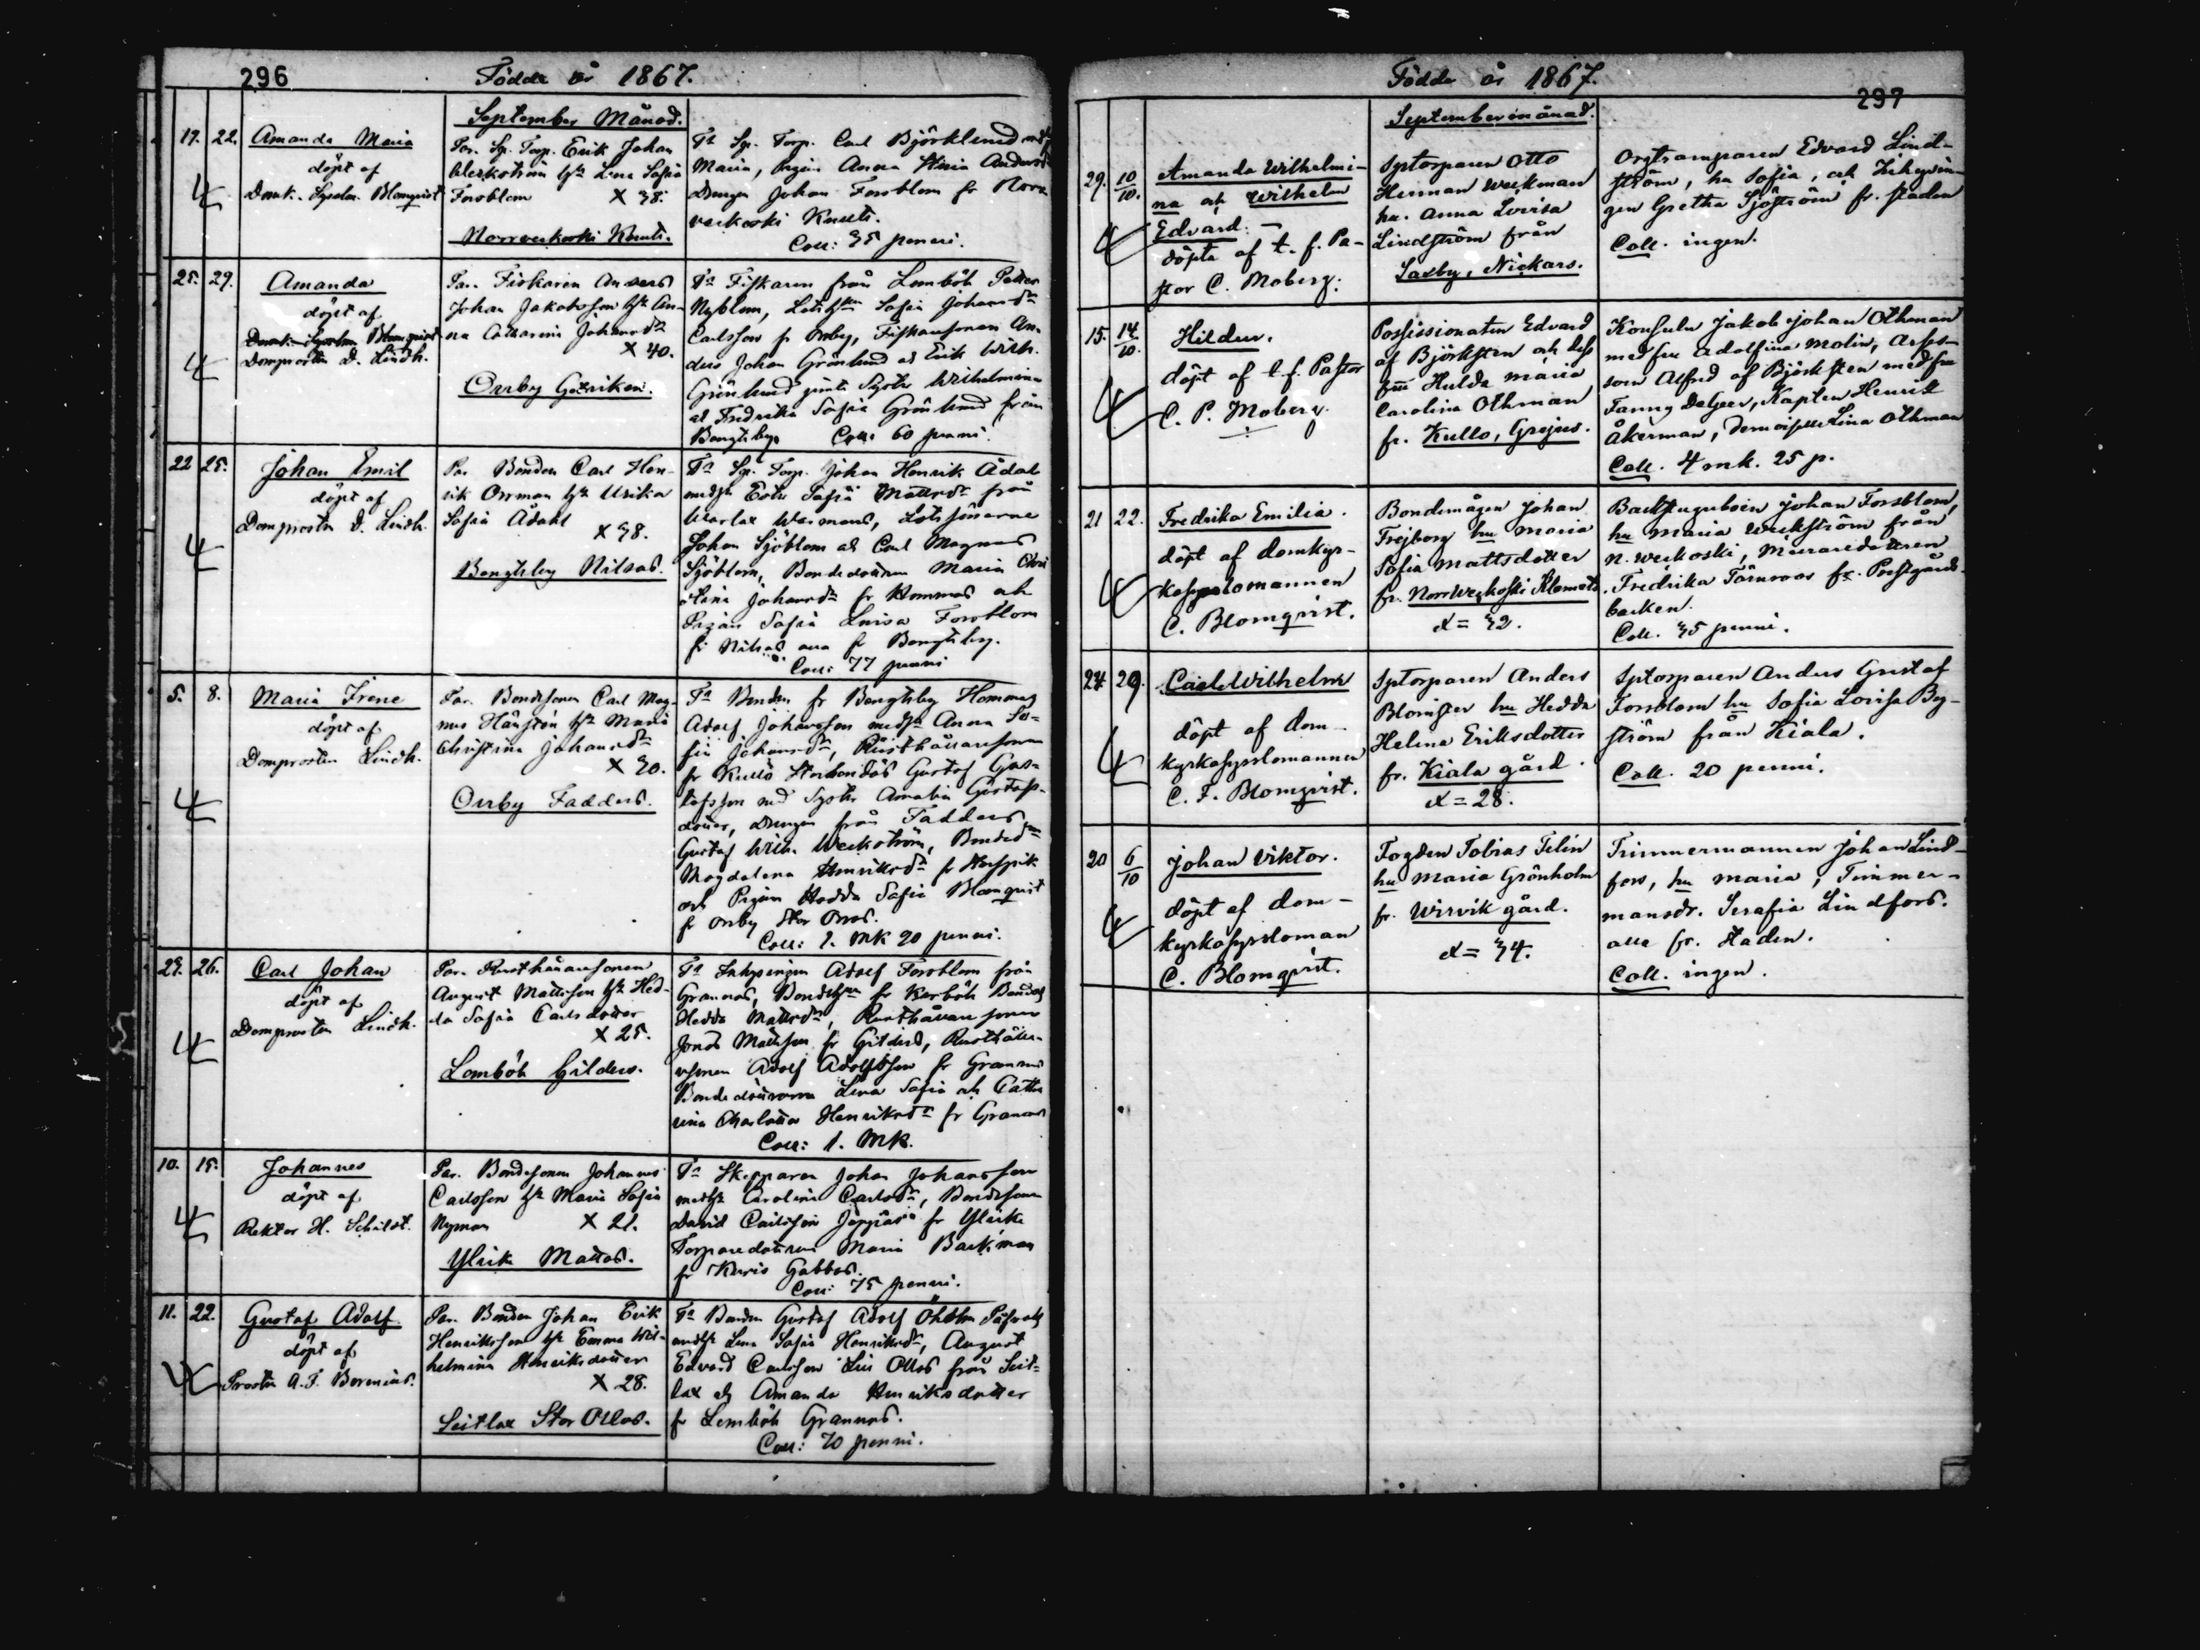 296
Födda år 1867.
September Månad.
17. 22. Amanda Maria
döpt af
Domk. Sysslom. Blomqvist
Par. Sp. Torp. Erik Johan
Weckström hst Lena Sofia
Forsblom X 38.
Norrveckoski Knuts.
Ts Sp. Torp. Carl Björklund med hst
Maria, Pigan Anna Stina Andersdr
Drengen Johan Forsblom fr Norr
veckoski Knuts.
Coll: 35 penni.
25. 29. Amanda
döpt af
Domk. Sysslom Blomqvist
Domprosten D. Lindh.
Par. Fiskaren Anders
Johan Jakobsson hst An-
na Catharina Johansdr
X 40.
Orrby Götriken.
Ts Fiskaren från Lomböle Petter
Nyblom, Sofia Johansdr
Carlsson fr Orrby, Fiskaresonen An-
ders Johan Grönlund och Erik Wilh.
Grönlund Syster Wilhelmina
och Fredrika Sofia Grönlund från
Bengtsby. Coll: 60 penni.
22 25. Johan Emil
döpt af
Domprosten D. Lindh.
Par Bonden Carl Hen-
rik Orrman hst Ulrika
Sofia Ådahl
X 38.
Bengtsby Nilsas.
Ts Sp. Torp. Johan Henrik Ådal
med hst Eva Sofia Mattsdr från
Warlax Warmans, Lotssönerne
Johan Sjöblom och Carl Magnus
Sjöblom, Bondedottren Maria Chri
stina Johansdr fr Hommas och
Pigan Sofia Lovisa Forsblom
fr Nilsas alla fr Bengtsby.
Coll: 77 penni
5. 8. Maria Irene
döpt af
Domprosten Lindh.
Par. Bondesonen Carl Mag-
nus hst Maria
Christina Johansdr
X 30.
Orrby Fadders.
Ts Bonden fr Bengtsby Hommas
Adolf Johansson med hst Anna So-
fia Johansdr, Rusthållaresonen
fr Kullo Storbondas Gustaf Gus-
tafsson med Syster Amalia Gustafs-
dotter, Drengen från Fadders
Gustaf Wilh. Weckström, Bondedtren
Magdalena Henriksdr fr
och Pigan Hedda Sofia Blomqvist
fr Orrby Stor Orras.
Coll: 1. Mk 20 penni.
23. 26. Carl Johan
döpt af
Domprosten Lindh.
Par. Rusthållaresonen
August Mattsson hst Hed-
da Sofia Carlsdotter
X 25.
Lomböle Gilders.
Ts Inhysingen Adolf Forsblom från
Grannas, Bondehstn fr Karböle
Hedda Mattsdr, Rusthållaresonen
Jonas Mattsson fr Gilders, Rusthålla-
resonen Adolf Adolfsson fr Grannas
Bondedöttrarna Lena Sofia och Catha
rina Charlotta Henriksdr fr Grannas
Coll: 1. Mk.
10. 15. Johannes
döpt af
Rektor H. Schildt.
Par. Bondesonen Johannes
Carlsson hst Maria Sofia
Nyman X 21.
Ylike Mattas.
Ts Skepparen Johan Johansson
med hst Carolina Carlsdr, Bondesonen
David Carlsson fr Ylike
Torparedottren Maria Backman
fr Kuris Gabbas.
Coll: 75 penni.
11. 22. Gustaf Adolf
döpt af
Prosten A. F. Borenius.
Par. Bonden Johan Erik
Henriksson hst Emma Wil-
helmina Henriksdotter
X 28.
Seitlax Stor Ollas.
Ts Bonden Gustaf Adolf Öhblom
med hst Lena Sofia Henriksdr, August
Edvard Carlsson Lill Ollas från Seit-
lax och Amanda Henriksdotter
fr Lomböle Grannas.
Coll: 70 penni.
Födda år 1867.
297
Septembermånad.
29. 10/10. Amanda Wilhelmi-
na och Wilhelm
Edvard: —
döpta af t. f. Pa-
stor C. Moberg:
Sptorparen Otto
Herman Weckman
hu. Anna Lovisa
Lindström från
Saxby, Nickars.
Orgtramparen Edvard Lind-
ström, hu Sofia, och Inhysin-
gen Gretha Sjöström fr. staden
Coll. ingen.
15. 14/10. Hildur.
döpt af t. f. Pastor
C. P. Moberg.
Possessionaten Edvard
af Björksten och dess
fru Hulda Maria
Carolina Othman
fr. Kullo, Grejus.
Konsuln Jakob Johan Othman
med fru Adolfina Molin, Asses-
sorn Alfred af Björksten med fru
Fanny Deljeer, Kapten Henrik
Åkerman, Demoiselle Lina Othman
Coll. 4 mk. 25 p.
21 22. Fredrika Emilia.
döpt af domkyr-
kosysslomannen
C. Blomqvist.
Bondemågen Johan
Frejborg hu Maria
Sofia Mattsdotter
fr. Norrweckoski Klemets
x = 32.
Backstugubon Johan Forsblom,
hu Maria Weckström från
N. Weckoski, Muraredottren
Fredrika Törnroos fr. Prestgårds-
backen.
Coll. 35 penni.
24 29. Carl Wilhelm
döpt af dom-
kyrkosysslomannen
C. F. Blomqvist.
Sptorparen Anders
Blomster hu Hedda
Helena Eriksdotter
fr. Kiala gård.
x = 28.
Sptorparen Anders Gustaf
Forsblom hu Sofia Lovisa By-
ström från Kiala.
Coll. 20 penni.
20 6/10 Johan Viktor.
döpt af dom-
kyrkosyssloman
C. Blomqvist.
Fogden Tobias Felin
hu Maria Grönholm
fr. Wirvik gård.
x = 34.
Timmermannen Johan Lind-
fors, hu Maria, Timmer-
mansdr. Serafia Lindfors.
alla fr. staden.
Coll. ingen.